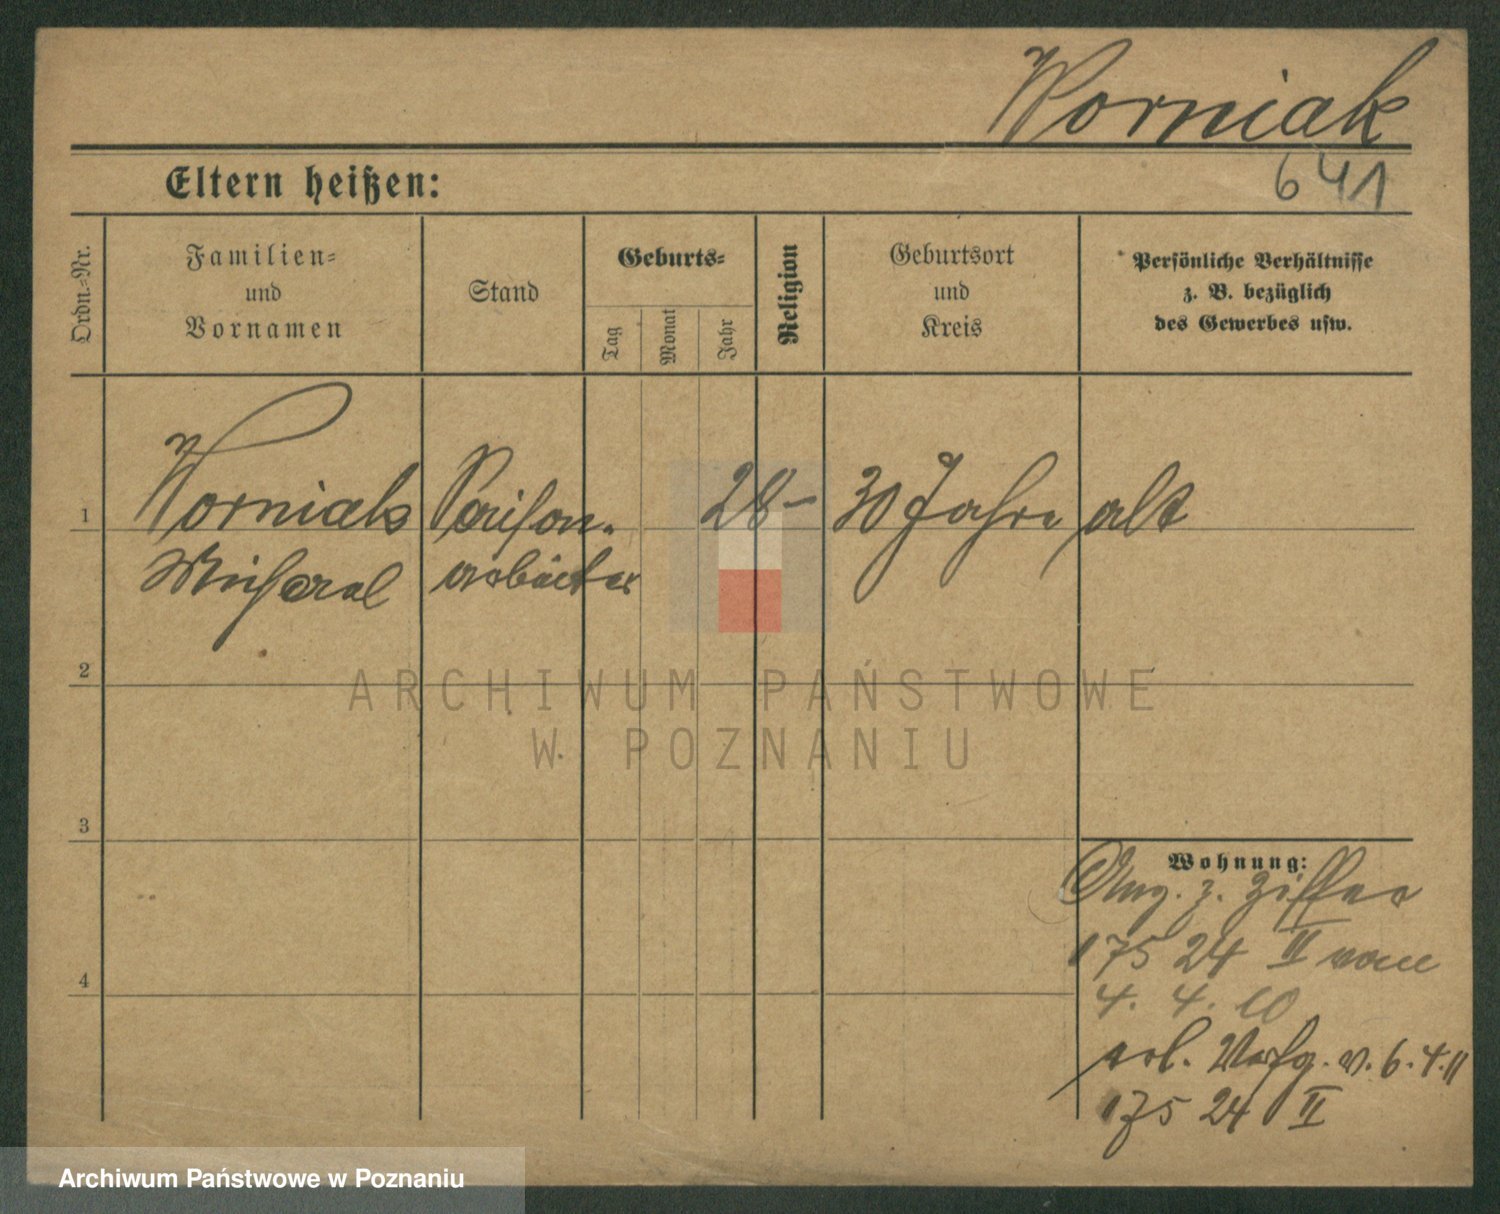 Worniak
641
Eltern heißen:
Ordn.-Nr.
Familien-
und
Vornamen
Stand
Geburts-
Tag
Monat
Jahr
Religion
Geburtsort
und
Kreis
Persönliche Verhältnisse
z. B. bezüglich
des Gewerbes usw.
1
Worniak Saison- 28 - 30 Jahre alt
Michael arbeiter
2
ARCHIWUM PAŃSTWOWE
W POZNANIU
3
Wohnung:
Ang. z. Ziffer
175 24 II vom
4
4. 4. 10
erl. Verfg. v. 6.4.11
175 24 II
Archiwum Państwowe w Poznaniu